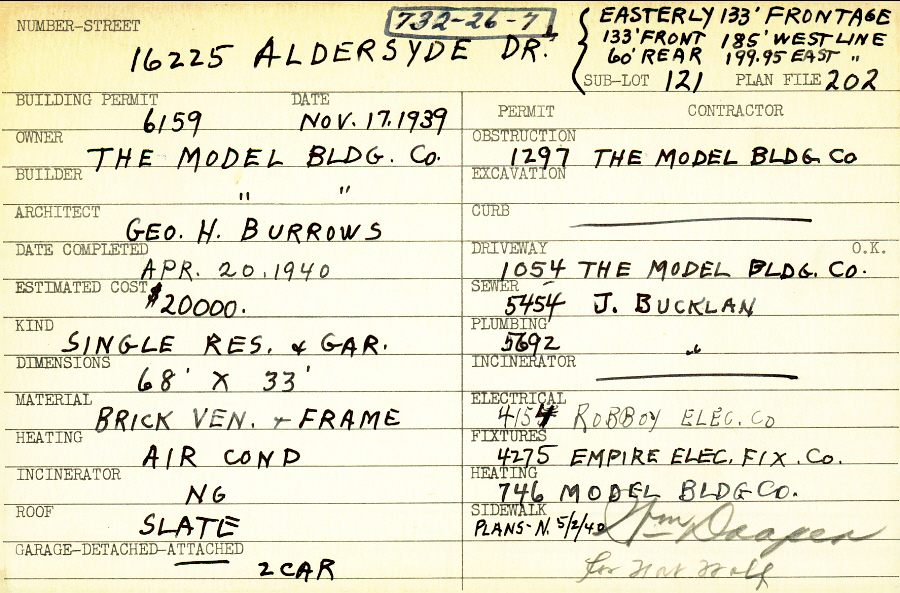 NUMBER-STREET
732-26-7
16225 ALDERSYDE DR.
EASTERLY 133' FRONTAGE
133' FRONT 185' WEST LINE
60' REAR 199.95 EAST "
SUB-LOT 121 PLAN FILE 202
BUILDING PERMIT DATE
6159 NOV. 17. 1939
OWNER
THE MODEL BLDG. CO.
BUILDER
" "
ARCHITECT
GEO. H. BURROWS
DATE COMPLETED
APR. 20. 1940
ESTIMATED COST
$20000.
KIND
SINGLE RES. & GAR.
DIMENSIONS
68' X 33'
MATERIAL
BRICK VEN. + FRAME
HEATING
AIR COND
INCINERATOR
NG
ROOF
SLATE
GARAGE-DETACHED-ATTACHED
2 CAR
PERMIT CONTRACTOR
OBSTRUCTION
1297 THE MODEL BLDG CO
EXCAVATION
CURB
DRIVEWAY O.K.
1054 THE MODEL BLDG. CO.
SEWER
5454 J. BUCKLAN
PLUMBING
5692 "
INCINERATOR
ELECTRICAL
4154 ROBBOY ELEC. CO
FIXTURES
4275 EMPIRE ELEC. FIX. CO.
HEATING
746 MODEL BLDG CO.
SIDEWALK
PLANS-N. 5/2/40 Wm Draper
for Nat Wolf